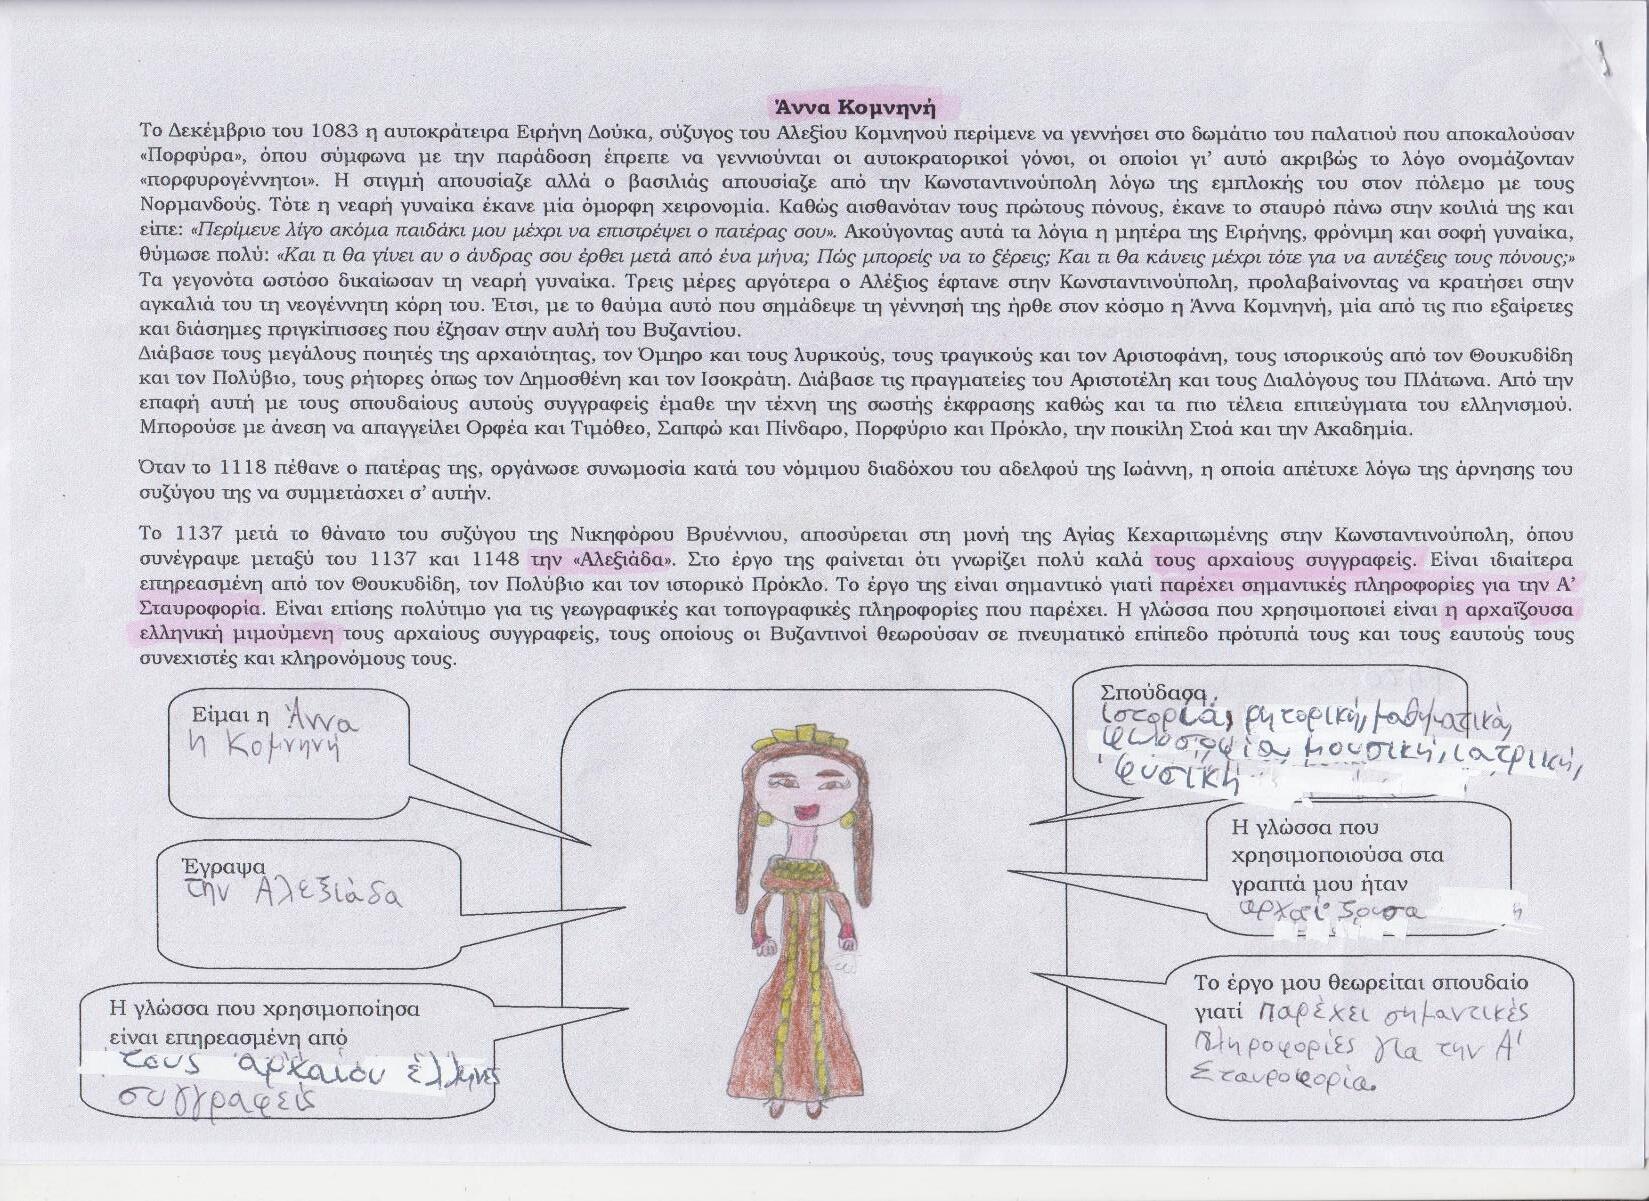 Άννα Κομνηνή
Το Δεκέμβριο του 1083 η αυτοκράτειρα Ειρήνη Δούκα, σύζυγος του Αλεξίου Κομνηνού περίμενε να γεννήσει στο δωμάτιο του παλατιού που αποκαλούσαν
«Πορφύρα», όπου σύμφωνα με την παράδοση έπρεπε να γεννιούνται οι αυτοκρατορικοί γόνοι, οι οποίοι γι' αυτό ακριβώς το λόγο ονομάζονταν
«πορφυρογέννητοι». Η στιγμή απουσίαζε αλλά ο βασιλιάς απουσίαζε από την Κωνσταντινούπολη λόγω της εμπλοκής του στον πόλεμο με τους
Νορμανδούς. Τότε η νεαρή γυναίκα έκανε μία όμορφη χειρονομία. Καθώς αισθανόταν τους πρώτους πόνους, έκανε το σταυρό πάνω στην κοιλιά της και
είπε: «Περίμενε λίγο ακόμα παιδάκι μου μέχρι να επιστρέψει ο πατέρας σου». Ακούγοντας αυτά τα λόγια η μητέρα της Ειρήνης, φρόνιμη και σοφή γυναίκα,
θύμωσε πολύ: «Και τι θα γίνει αν ο άνδρας σου έρθει μετά από ένα μήνα; Πώς μπορείς να το ξέρεις; Και τι θα κάνεις μέχρι τότε για να αυτέξεις τους πόνους;»
Τα γεγονότα ωστόσο δικαίωσαν τη νεαρή γυναίκα. Τρεις μέρες αργότερα ο Αλέξιος έφτανε στην Κωνσταντινούπολη, προλαβαίνοντας να κρατήσει στην
αγκαλιά του τη νεογέννητη κόρη του. Έτσι, με το θαύμα αυτό που σημάδεψε τη γέννησή της ήρθε στον κόσμο η Άννα Κομνηνή, μία από τις πιο εξαίρετες
και διάσημες πριγκίπισσες που έζησαν στην αυλή του Βυζαντίου.
Διάβασε τους μεγάλους ποιητές της αρχαιότητας, τον Όμηρο και τους λυρικούς, τους τραγικούς και τον Αριστοφάνη, τους ιστορικούς από τον Θουκυδίδη
και τον Πολύβιο, τους ρήτορες όπως τον Δημοσθένη και τον Ισοκράτη. Διάβασε τις πραγματείες του Αριστοτέλη και τους Διαλόγους του Πλάτωνα. Από την
επαφή αυτή με τους σπουδαίους αυτούς συγγραφείς έμαθε την τέχνη της σωστής έκφρασης καθώς και τα πιο τέλεια επιτεύγματα του ελληνισμού.
Μπορούσε με άνεση να απαγγείλει Ορφέα και Τιμόθεο, Σαπφώ και Πίνδαρο, Πορφύριο και Πρόκλο, την ποικίλη Στοά και την Ακαδημία.
Όταν το 1118 πέθανε ο πατέρας της, οργάνωσε συνωμοσία κατά του νόμιμου διαδόχου του αδελφού της Ιωάννη, η οποία απέτυχε λόγω της άρνησης του
συζύγου της να συμμετάσχει σ' αυτήν.
Το 1137 μετά το θάνατο του συζύγου της Νικηφόρου Βρυέννιου, αποσύρεται στη μονή της Αγίας Κεχαριτωμένης στην Κωνσταντινούπολη, όπου
συνέγραψε μεταξύ του 1137 και 1148 την «Αλεξιάδα». Στο έργο της φαίνεται ότι γνωρίζει πολύ καλά τους αρχαίους συγγραφείς. Είναι ιδιαίτερα
επηρεασμένη από τον Θουκυδίδη, τον Πολύβιο και τον ιστορικό Πρόκλο. Το έργο της είναι σημαντικό γιατί παρέχει σημαντικές πληροφορίες για την Α'
Σταυροφορία. Είναι επίσης πολύτιμο για τις γεωγραφικές και τοπογραφικές πληροφορίες που παρέχει. Η γλώσσα που χρησιμοποιεί είναι η αρχαΐζουσα
ελληνική μιμούμενη τους αρχαίους συγγραφείς, τους οποίους οι Βυζαντινοί θεωρούσαν σε πνευματικό επίπεδο πρότυπά τους και τους εαυτούς τους
συνεχιστές και κληρονόμους τους.
Είμαι η Άννα
η Κομνηνή
Έγραψα
την Αλεξιάδα
Η γλώσσα που χρησιμοποίησα
είναι επηρεασμένη από
τους αρχαίου έλληνες
συγγραφείς
Σπούδασα
ιστορία, ρητορική, μαθηματικά,
φιλοσοφία, μουσική, ιατρική,
φυσική
Η γλώσσα που
χρησιμοποιούσα στα
γραπτά μου ήταν
αρχαϊζουσα
Το έργο μου θεωρείται σπουδαίο
γιατί παρέχει σημαντικές
πληροφορίες για την Α'
Σταυροφορία.